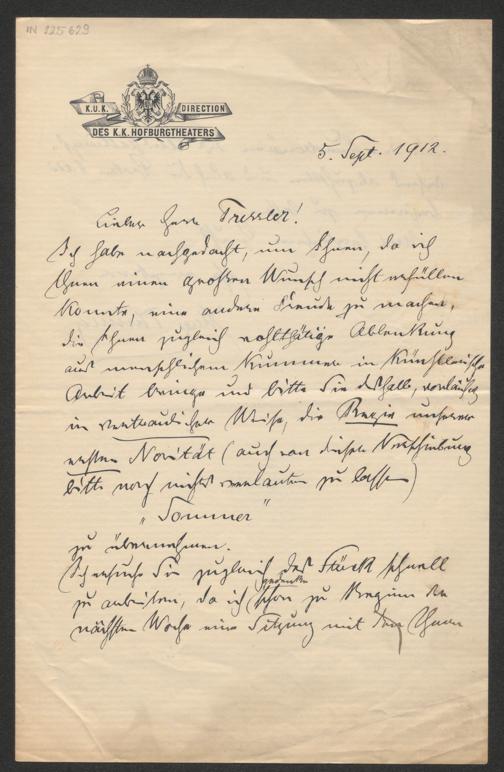 IN 125629
K.U.K. DIRECTION
DES K.K. HOFBURGTHEATERS
5. Sept. 1912.
Lieber Herr Tressler!
Ich habe nachgedacht, um Ihnen, da ich
Ihnen einen großen Wunsch nicht erfüllen
konnte, eine andere Freude zu machen,
die Ihnen zugleich wohlthätige Ablenkung
aus menschlichem Kummer in künstlerische
Arbeit bringe und bitte Sie deshalb, vorläufig
in vertraulicher Weise, die Regie unserer
ersten Novität (auch von dieser Verschiebung
bitte noch nichts verlauten zu lassen)
„Sommer"
zu übernehmen.
Ich ersuche Sie zugleich das Stück schnell
zu arbeiten, da ich schon gedenke zu Beginn der
nächsten Woche eine Sitzung mit den Ihnen